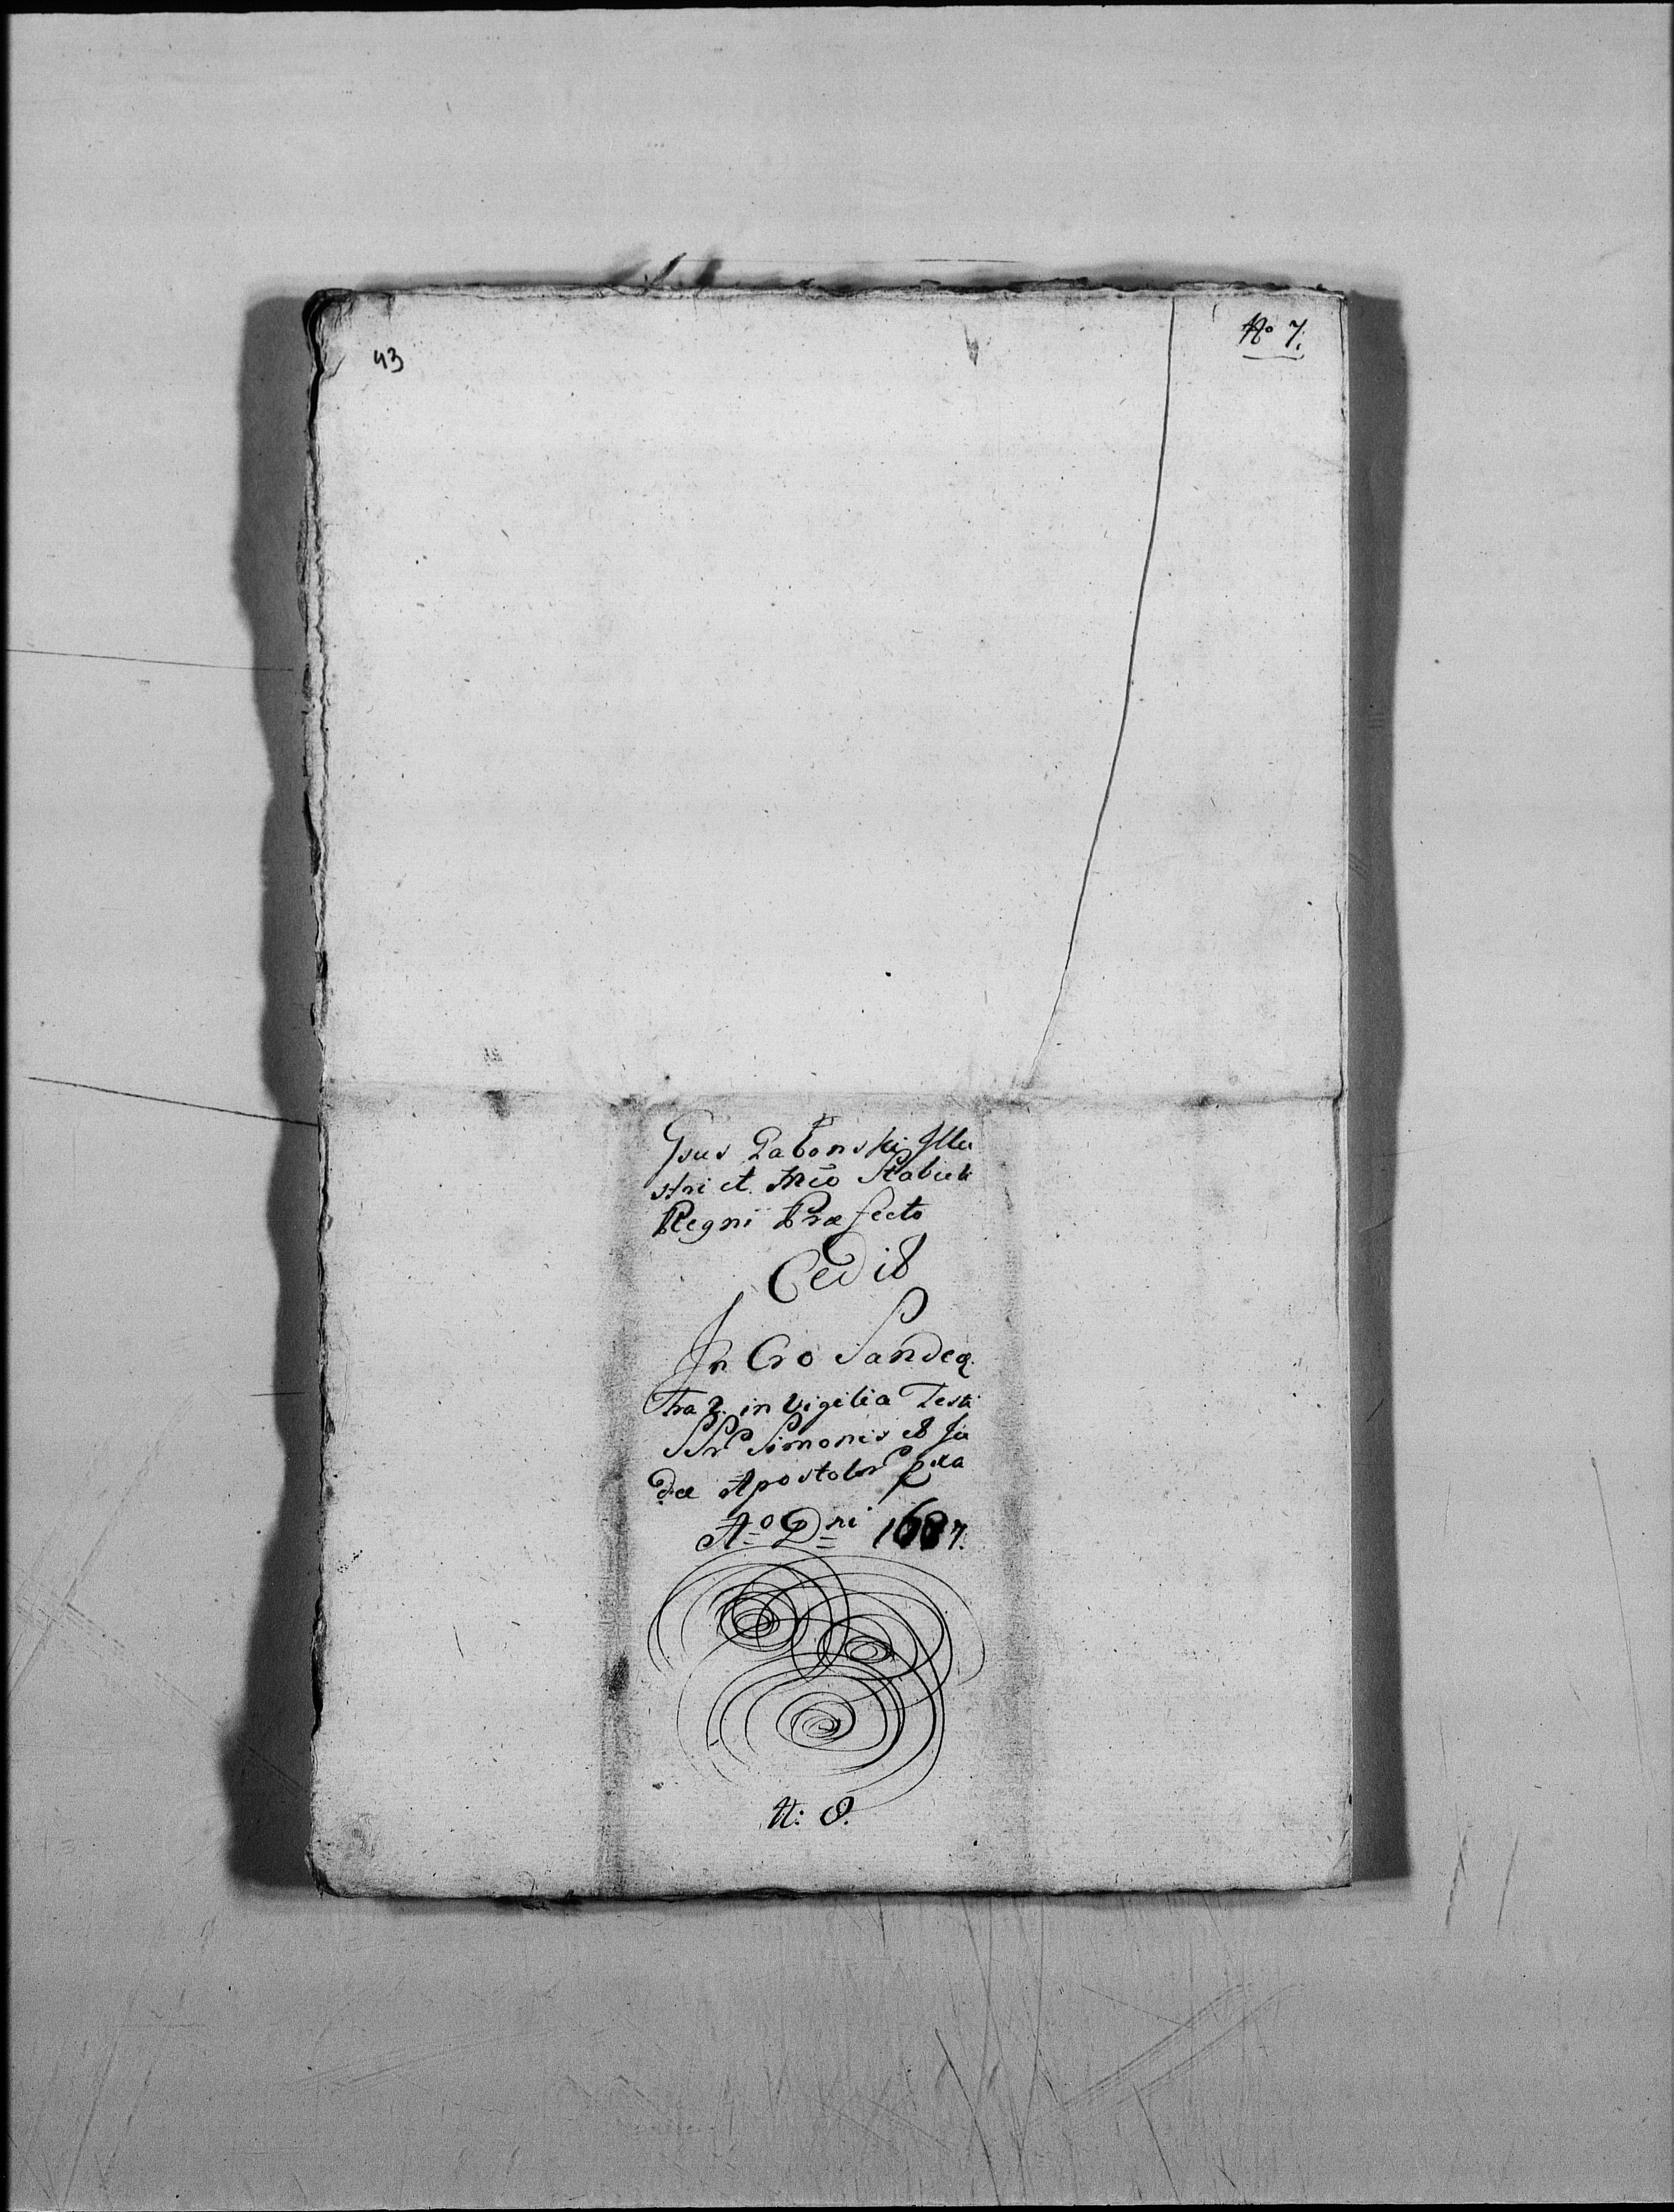 43
No 7.
Gsus Łabonski Illu
stri et Mco Stabuli
Regni Præfecto
Cedit
In Cro Sandec.
Fra 2. in Vigilia Festi
SSr Simonis et Ju
dæ Apostolor
Ao Dni 1687.
N: 8.